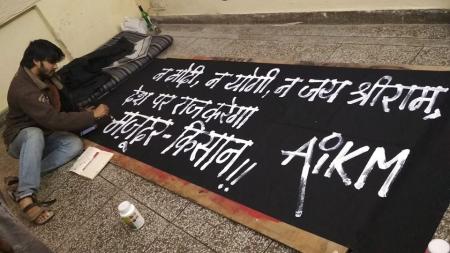 न मोदी, न योगी, न जय श्रीराम,
देश पर राज करेगा
मज़दूर - किसान!!
AiKM